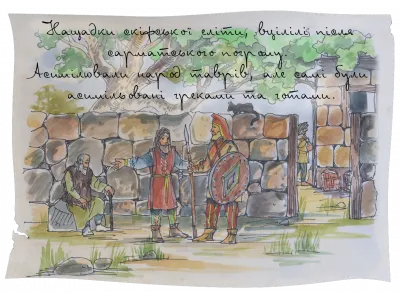 Нащадки скіфської еліти, вцілілі після
сарматського погрому.
Асимілювали народ таврів, але самі були
асимільовані греками та готами.